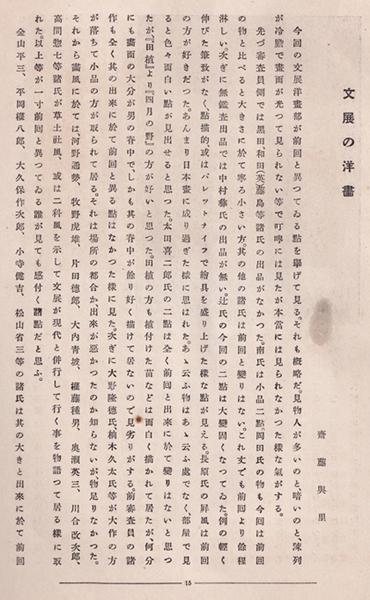 文展の洋畫
齋藤與里
今囘の文展洋畫部が前囘と異つてゐる點を擧げて見る。それも槪略だ。見物人が多いのと、暗いのと、陳列
が冷膽で畫面が光つて見られない等で叮嚀には見たが本當には見られなかつた樣な氣がする。
先づ審査員側では黑田和田(英)藤島等諸氏の出品がなかつた。南氏は小品二點。岡田氏の物も今囘は前囘
の物と比べると大きさに於て寧ろ小さい方。其の他の諸氏は前囘と變りはない。これ丈でも前囘より餘程
淋しい。次ぎに無鑑査出品では中村彝氏の出品が無い。辻氏の今囘の二點は大變固くなつてゐた。例の輕く
伸びた筆致がなく、點描的或はパレツトナイフで繪具を盛り上げた樣な點が見える。長原氏の屛風は前囘
の方が好きだつた。あんまり日本畫に成り過ぎた樣に思はれた。あゝ云ふ物はあゝ云ふ處でなく、部屋で見
ると色々面白い點が見出せると思つた。太田喜二郞氏の二點は全く前囘と出來に於て變りはないと思つ
たが『田植』より『四月の野』の方が好いと思つた。田植の方も植付けた苗などは面白く描かれて居たが、何分
にも畫面の大分が男の脊中で、しかも其の脊中が餘り好く描けて居ないので見劣りがする。前審査員の諸
作も全く其の出來に於て前囘と異る點はなかつた樣に見た。次ぎに大野隆德氏、柚木久太氏等が大作の方
が落ちて小品の方が取られて居る。それは場所の都合か出來が惡かつたのか知らないが物足りなかつた。
それから滿風に於ては、河野通勢、牧野虎雄、片田德郞、大內靑坡、權藤種男、奥瀨英三、川合改次郞、
高間惣七等諸氏が草土社風、或は二科風を示して文展が現代と併行して行く事を物語つて居る樣に取
れた。以上等が一寸前囘と異つてゐる誰が見ても感付く諸點だと思ふ。
金山平三、平岡權八郞、大久保作次郞、小寺健吉、松山省三等の諸氏は其の大きと出來に於て前囘
15